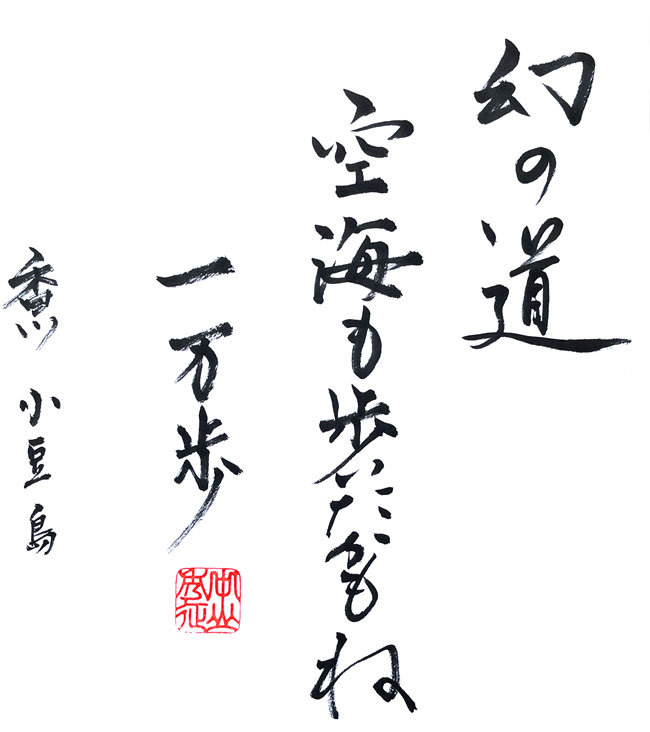 幻の道
空海も歩いたかもね
一万歩
香川 小豆島